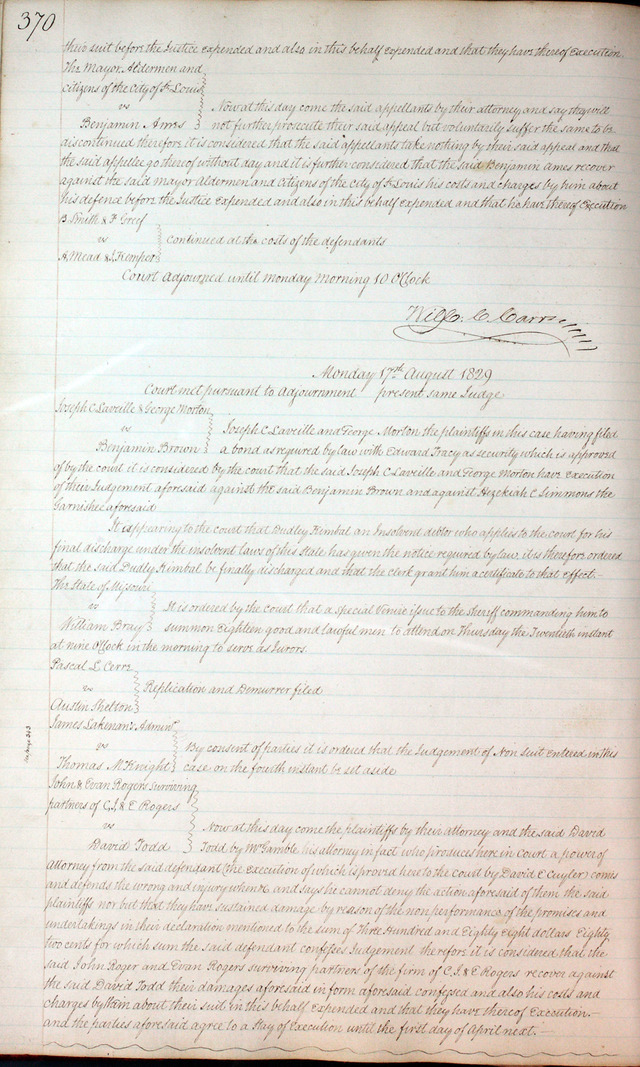 370
their suit before the Justice expended and also in this behalf expended and that they have thereof Execution
The Mayor, Aldermen and
citizens of the City of St Louis
vs
Benjamin Ames
Now at this day come the said appellants by their attorney and say they will
not further prosecute their said appeal but voluntarily suffer the same to be
discontinued therefore it is considered that the said appellants take nothing by their said appeal and that
the said appellee go thereof without day and it is further considered that the said Benjamin Ames recover
against the said Mayor Aldermen and Citizens of the city of St Louis his costs and charges by him about
his defence before the Justice Expended and also in this behalf expended and that he have thereof Execution
B. Smith & F Greef
vs
A. Mead & J. Kemper
continued at the costs of the defendants
Court Adjourned until Monday Morning 10 O'Clock
Will. C. Carr
Monday 17th August 1829
Court met pursuant to Adjournment present same Judge
Joseph C Laveille & George Morton
vs
Benjamin Brown
Joseph C. Laveille and George Morton the plaintiffs in this case having filed
a bond as required by law with Edward Tracy as security which is approved
of by the court it is considered by the court that the said Joseph C Laveille and George Morton have Execution
of their Judgement aforesaid against the said Benjamin Brown and against Hezekiah C Simmons the
Garnishee aforesaid
It appearing to the court that Dudley Kimbal an Insolvent debtor who applies to the court for his
final discharge under the insolvent laws of this State has given the notice required by law, it is therefore ordered
that the said Dudley Kimbal be finally discharged and that the clerk grant him a certificate to that effect.
The State of Missouri
vs
William Bray
It is ordered by the court that a special Venire issue to the sheriff commanding him to
summon Eighteen good and lawful men to attend on Thursday the Twentieth instant
at nine O'Clock in the morning to serve as Jurors.
Pascal L. Cerre
vs
Austin Shelton
Replication and Demurrer filed
James Lakenan's Adminr
vs
Thomas McKnight
By consent of parties it is ordered that the Judgement of Non Suit entered in this
case on the fourth instant be set aside
John & Evan Rogers surviving
partners of C, J, & E Rogers
vs
David Todd
Now at this day come the plaintiffs by their attorney and the said David
Todd by Mr Gamble his attorney in fact who produces here in Court a power of
Attorney from the said defendant (the Execution of which is proved here to the court by David E Cuyler) comes
and defends the wrong and injury when &c and says he cannot deny the action aforesaid of them the said
plaintiffs nor but that they have sustained damage by reason of the non performance of the promises and
undertakings in their declaration mentioned to the sum of Three Hundred and Eighty Eight dollars Eighty
two cents for which sum the said defendant confesses Judgement therefore it is considered that the
said John Roger and Evan Rogers surviving partners of the firm of C. J. & E Rogers recover against
the said David Todd their damages aforesaid in form aforesaid confessed and also his costs and
charges by them about their suit in this behalf Expended and that they have thereof Execution.
and the parties aforesaid agree to a Stay of Execution until the first day of April next.